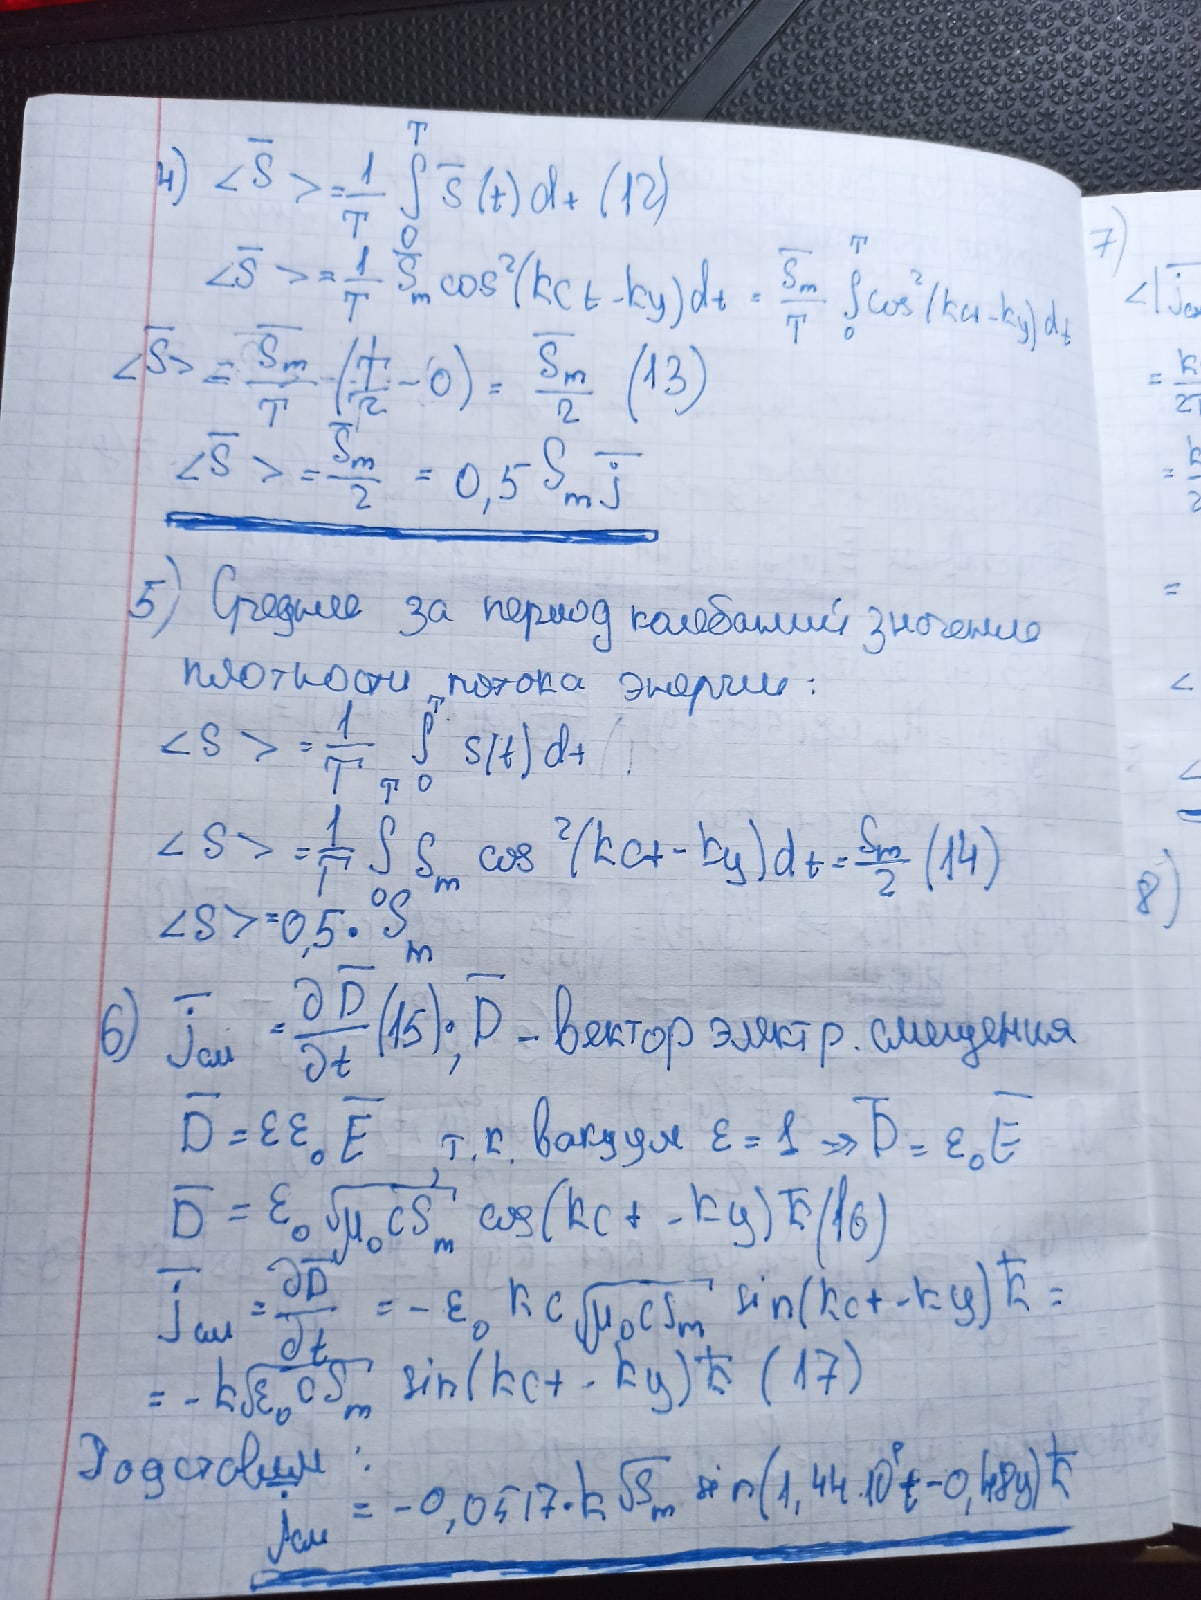 4) <S̅> = 1/T ∫₀ᵀ S̅(t)dt (12)
<S̅> = 1/T S̅m cos²(kct-ky)dt = S̅m/T ∫₀ᵀ cos²(kct-ky)dt
<S̅> = S̅m/T · (T/2 - 0) = S̅m/2 (13)
<S̅> = S̅m/2 = 0,5 Sm j̅
5) Среднее за период колебаний значение
плотности потока энергии:
<S> = 1/T ∫₀ᵀ S(t)dt
<S> = 1/T ∫₀ᵀ Sm cos²(kct-ky)dt = Sm/2 (14)
<S> = 0,5·Sm
6) j̅см = ∂D̅/∂t (15); D̅ - вектор электр. смещения
D̅ = εε₀E̅, т.к. вакуум ε = 1 => D̅ = ε₀E̅
D̅ = ε₀√(μ₀cSm) cos(kct-ky)k̅ (16)
j̅см = ∂D̅/∂t = -ε₀kc√(μ₀cSm) sin(kct-ky)k̅ =
= -k√(ε₀cSm) sin(kct-ky)k̅ (17)
Подставим:
j̅см = -0,0517·k√Sm sin(1,44·10⁸t-0,48y)k̅
7)
<|j̅см
= k
2T
= k
2
=
<
<
8)